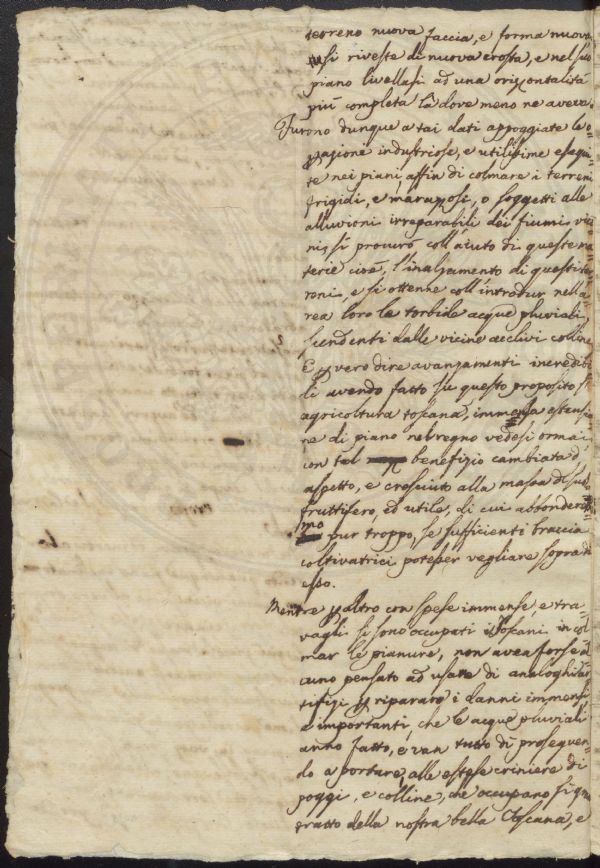 terreno nuova faccia, e forma nuova
si riveste di nuova crosta, e nel suo
piano livellasi ad una orizontalità
più completa là dove meno ne aveva.
Furono dunque a tai dati appoggiate le o-
pazione industriose, e utilissime esegui-
te nei piani, affin di colmare i terreni
frigidi, e marazosi, o soggetti alle
alluvioni irreparabili dei fiumi vici
ni, si procurò coll'aiuto di queste ma
terie cioè, l'inalzamento di questi ter
reni, e si ottenne coll'introdur nell'a
rea loro le torbide acque pluviali
scendenti dalle vicine acclivi colline
E p vero dire avanzamenti incredibi
li avendo fatto su questo proposito l'
agricoltura toscana, immensa estensio
ne di piano nel regno vedesi ormai
con tal benefizio cambiata d'
aspetto, e cresciuto alla massa di suolo
fruttifero, ed utile, di cui abbondere
mo pur troppo, se sufficienti braccia
coltivatrici potesser vegliare sopra di
esso.
Mentre p altro con spese immense e tra-
vagli si sono occupati i Toscani in col
mar le pianure, non avea forse al
cuno pensato ad usare di analoghi ar
tifizi p riparare i danni immensi,
e importanti, che le acque pluviali
anno fatto, e van tutto dì proseguen-
do a portare, alle estese criniere di
poggi, e colline, che occupano sì gran
tratto della nostra bella Toscana, e